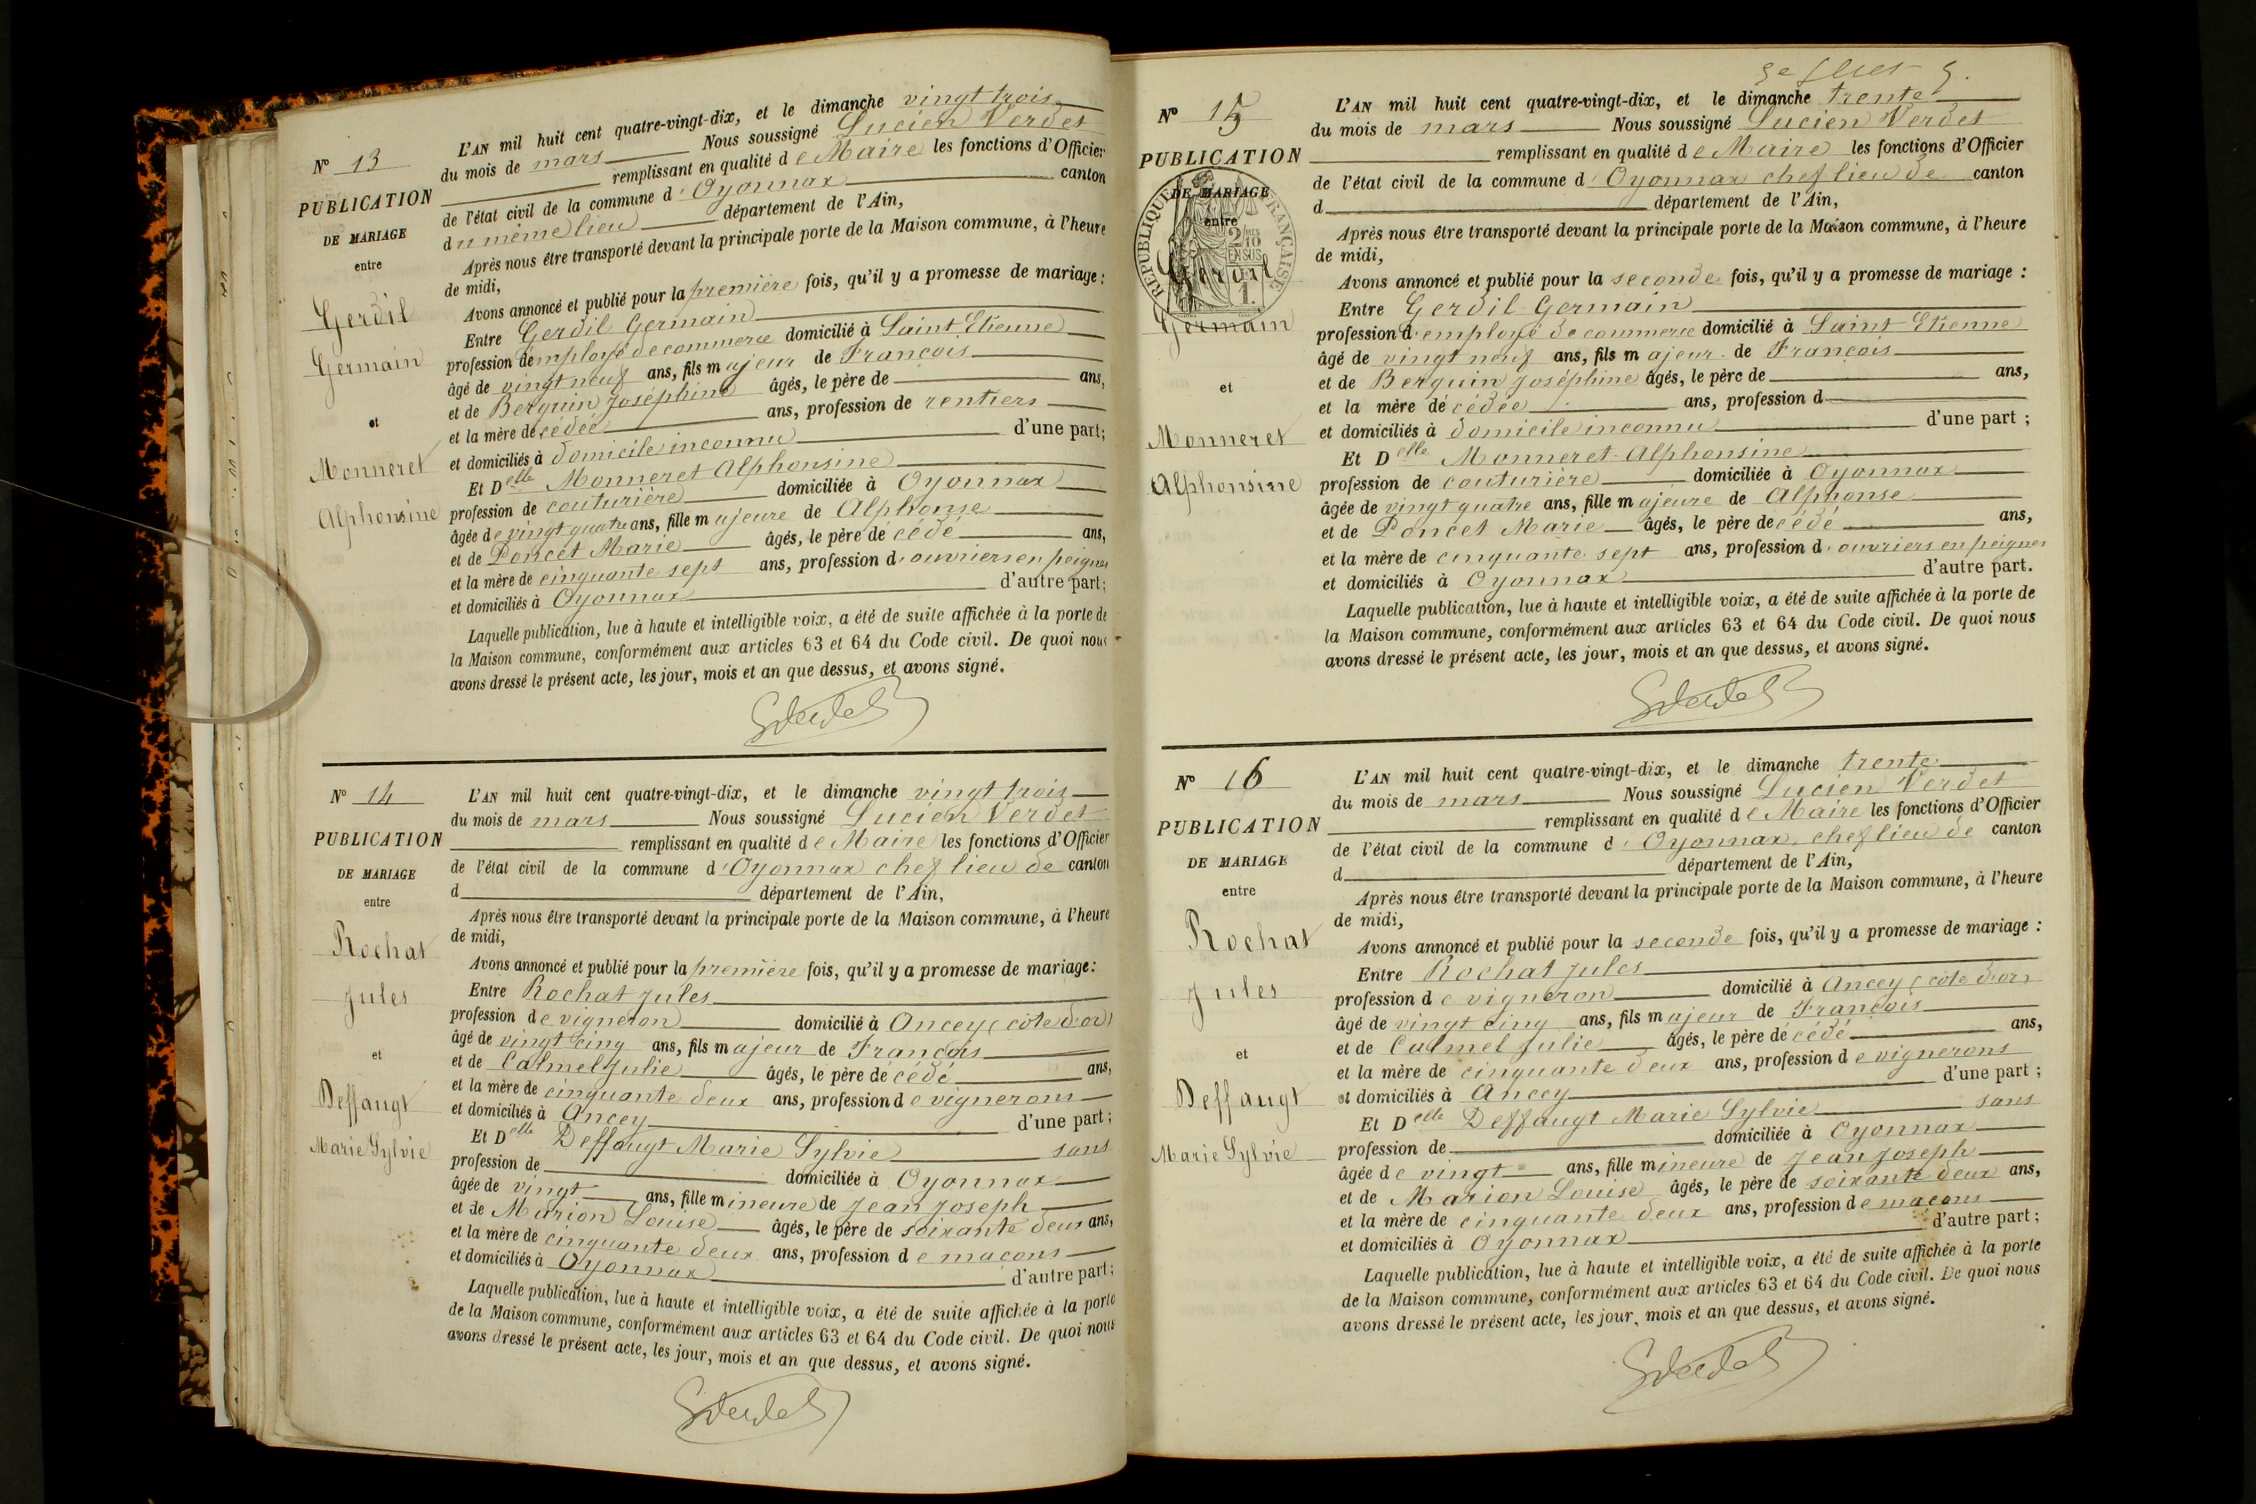 N° 13
PUBLICATION
DE MARIAGE
entre
Gerdil
Germain
et
Monneret
Alphonsine
L'AN mil huit cent quatre-vingt-dix, et le dimanche vingt trois
du mois de mars Nous soussigné Lucien Verdet
remplissant en qualité de Maire les fonctions d'Officier
de l'état civil de la commune d'Oyonnax canton
du même lieu département de l'Ain,
Après nous être transporté devant la principale porte de la Maison commune, à l'heure
de midi,
Avons annoncé et publié pour la première fois, qu'il y a promesse de mariage :
Entre Gerdil Germain
profession d'employé de commerce domicilié à Saint Etienne
âgé de vingt neuf ans, fils majeur de François
et de Berguin Joséphine âgés, le père de ans,
et la mère décédée ans, profession de rentiers
et domiciliés à domicile inconnu d'une part;
Et Delle Monneret Alphonsine
profession de couturière domiciliée à Oyonnax
âgée de vingt quatre ans, fille majeure de Alphonse
et de Poncet Marie âgés, le père décédé ans,
et la mère de cinquante sept ans, profession d'ouvriers en peignes
et domiciliés à Oyonnax d'autre part;
Laquelle publication, lue à haute et intelligible voix, a été de suite affichée à la porte de
la Maison commune, conformément aux articles 63 et 64 du Code civil. De quoi nous
avons dressé le présent acte, les jour, mois et an que dessus, et avons signé.
N° 14
PUBLICATION
DE MARIAGE
entre
Rochat
Jules
et
Deffaugt
Marie Sylvie
L'AN mil huit cent quatre-vingt-dix, et le dimanche vingt trois
du mois de mars Nous soussigné Lucien Verdet
remplissant en qualité de Maire les fonctions d'Officier
de l'état civil de la commune d'Oyonnax chef lieu de canton
d département de l'Ain,
Après nous être transporté devant la principale porte de la Maison commune, à l'heure
de midi,
Avons annoncé et publié pour la première fois, qu'il y a promesse de mariage:
Entre Rochat Jules
profession de vigneron domicilié à Ancey (côte d'or)
âgé de vingt cinq ans, fils majeur de François
et de Calmel Julie âgés, le père décédé ans,
et la mère de cinquante deux ans, profession de vignerons
et domiciliés à Ancey d'une part;
Et Delle Deffaugt Marie Sylvie sans
profession de domiciliée à Oyonnax
âgée de vingt ans, fille mineure de Jean Joseph
et de Marion Louise âgés, le père de soixante deux ans,
et la mère de cinquante deux ans, profession de maçons
et domiciliés à Oyonnax d'autre part;
Laquelle publication, lue à haute et intelligible voix, a été de suite affichée à la porte
de la Maison commune, conformément aux articles 63 et 64 du Code civil. De quoi nous
avons dressé le présent acte, les jour, mois et an que dessus, et avons signé.
N° 15
PUBLICATION
DE MARIAGE
entre
RÉPUBLIQUE FRANÇAISE
Gerdil
Germain
et
Monneret
Alphonsine
L'AN mil huit cent quatre-vingt-dix, et le dimanche trente
du mois de mars Nous soussigné Lucien Verdet
remplissant en qualité de Maire les fonctions d'Officier
de l'état civil de la commune d'Oyonnax chef lieu de canton
d département de l'Ain,
Après nous être transporté devant la principale porte de la Maison commune, à l'heure
de midi,
Avons annoncé et publié pour la seconde fois, qu'il y a promesse de mariage :
Entre Gerdil Germain
profession d'employé de commerce domicilié à Saint Etienne
âgé de vingt neuf ans, fils majeur de François
et de Berguin Joséphine âgés, le père de ans,
et la mère décédée ans, profession d
et domiciliés à domicile inconnu d'une part ;
Et Delle Monneret Alphonsine
profession de couturière domiciliée à Oyonnax
âgée de vingt quatre ans, fille majeure de Alphonse
et de Poncet Marie âgés, le père décédé ans,
et la mère de cinquante sept ans, profession d'ouvriers en peignes
et domiciliés à Oyonnax d'autre part.
Laquelle publication, lue à haute et intelligible voix, a été de suite affichée à la porte de
la Maison commune, conformément aux articles 63 et 64 du Code civil. De quoi nous
avons dressé le présent acte, les jour, mois et an que dessus, et avons signé.
N° 16
PUBLICATION
DE MARIAGE
entre
Rochat
Jules
et
Deffaugt
Marie Sylvie
L'AN mil huit cent quatre-vingt-dix, et le dimanche trente
du mois de mars Nous soussigné Lucien Verdet
remplissant en qualité de Maire les fonctions d'Officier
de l'état civil de la commune d'Oyonnax, chef lieu de canton
d département de l'Ain,
Après nous être transporté devant la principale porte de la Maison commune, à l'heure
de midi,
Avons annoncé et publié pour la seconde fois, qu'il y a promesse de mariage :
Entre Rochat Jules
profession de vigneron domicilié à Ancey (côte d'or)
âgé de vingt cinq ans, fils majeur de François
et de Calmel Julie âgés, le père décédé ans,
et la mère de cinquante deux ans, profession de vignerons
et domiciliés à Ancey d'une part ;
Et Delle Deffaugt Marie Sylvie sans
profession de domiciliée à Oyonnax
âgée de vingt ans, fille mineure de Jean Joseph
et de Marion Louise âgés, le père de soixante deux ans,
et la mère de cinquante deux ans, profession de maçons
et domiciliés à Oyonnax d'autre part ;
Laquelle publication, lue à haute et intelligible voix, a été de suite affichée à la porte
de la Maison commune, conformément aux articles 63 et 64 du Code civil. De quoi nous
avons dressé le présent acte, les jour, mois et an que dessus, et avons signé.